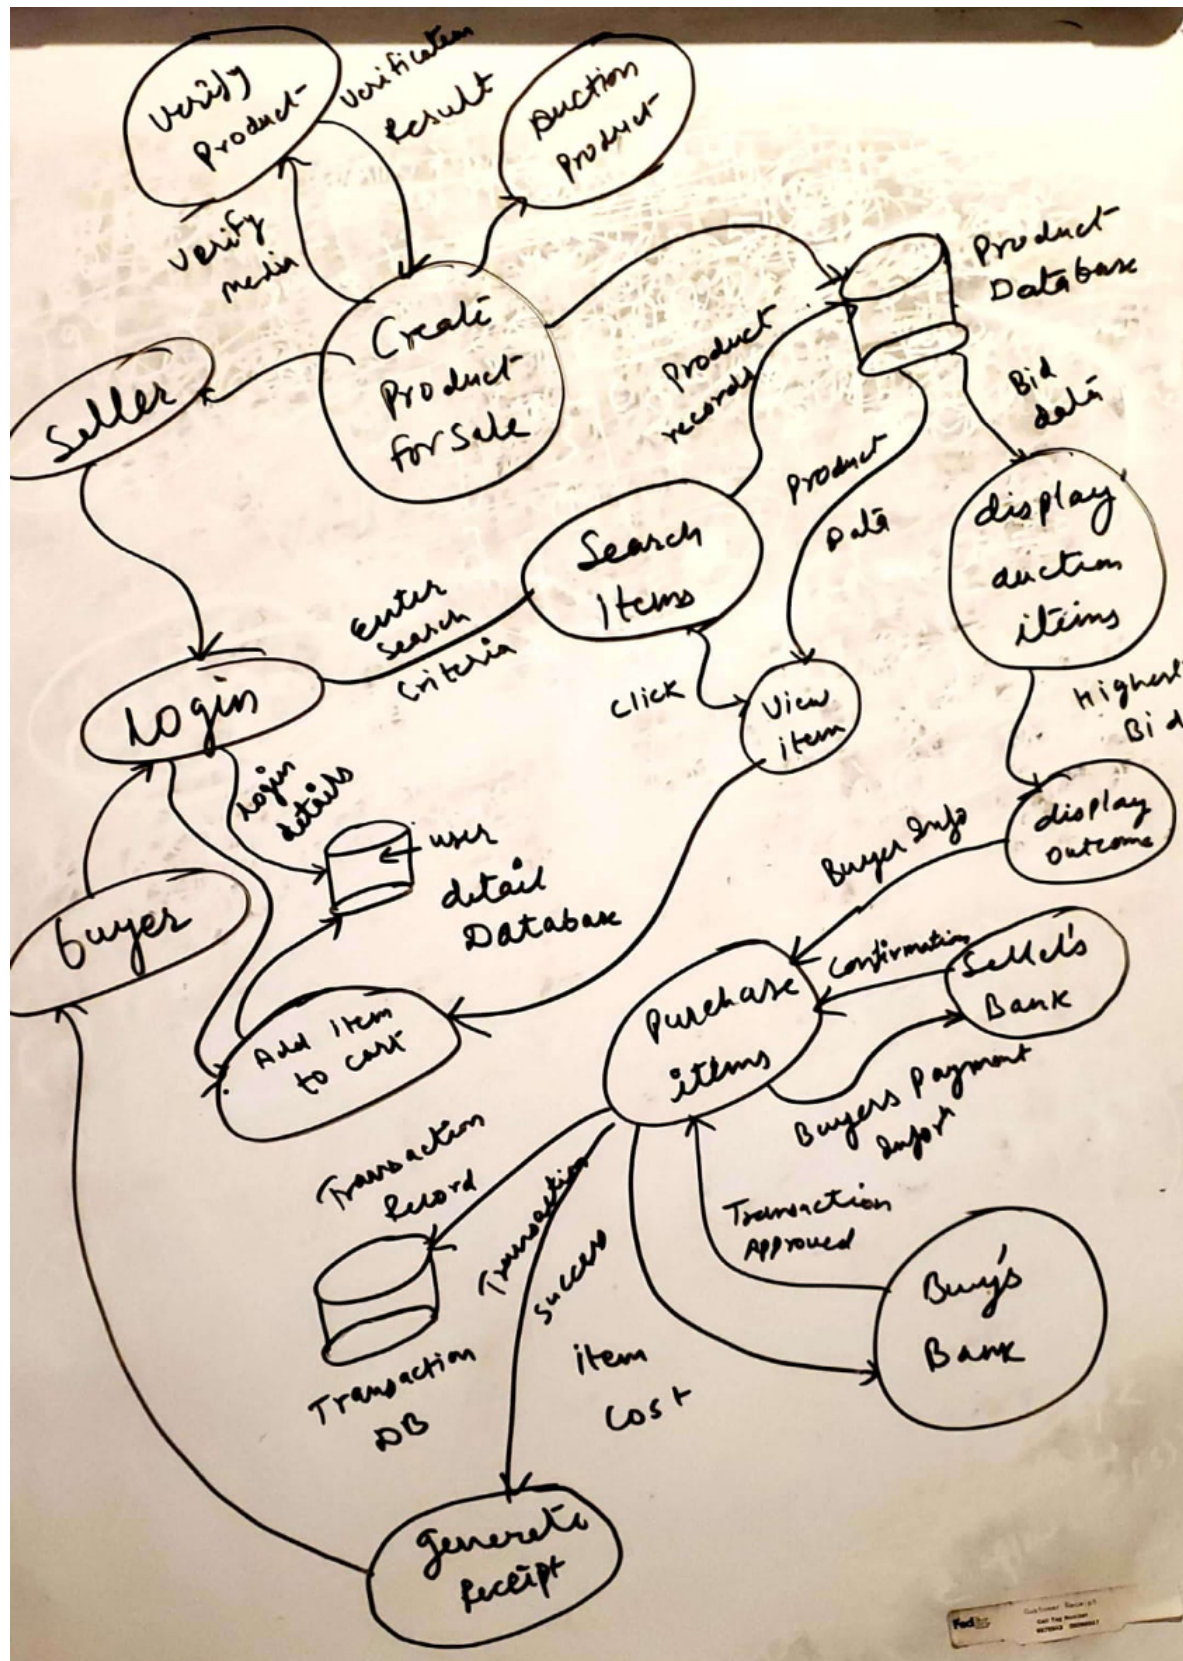 Verify
Product
Verification
Result
Auction
Product
Verify
media
Create
Product
for Sale
Product
Database
Seller
Product
records
Bid
data
Product
Data
display
auction
items
Search
Items
Enter
Search
Criteria
Login
Click
View
item
Highest
Bid
Login
details
user
detail
Database
display
outcome
Buyer Info
buyer
Confirmation
Seller's
Bank
Purchase
items
Add item
to cart
Buyers Payment
Transaction
Record
Transaction
Success
Transaction
Approved
Buy's
Bank
item
Cost
Transaction
DB
Generate
Receipt
Customer Receipt